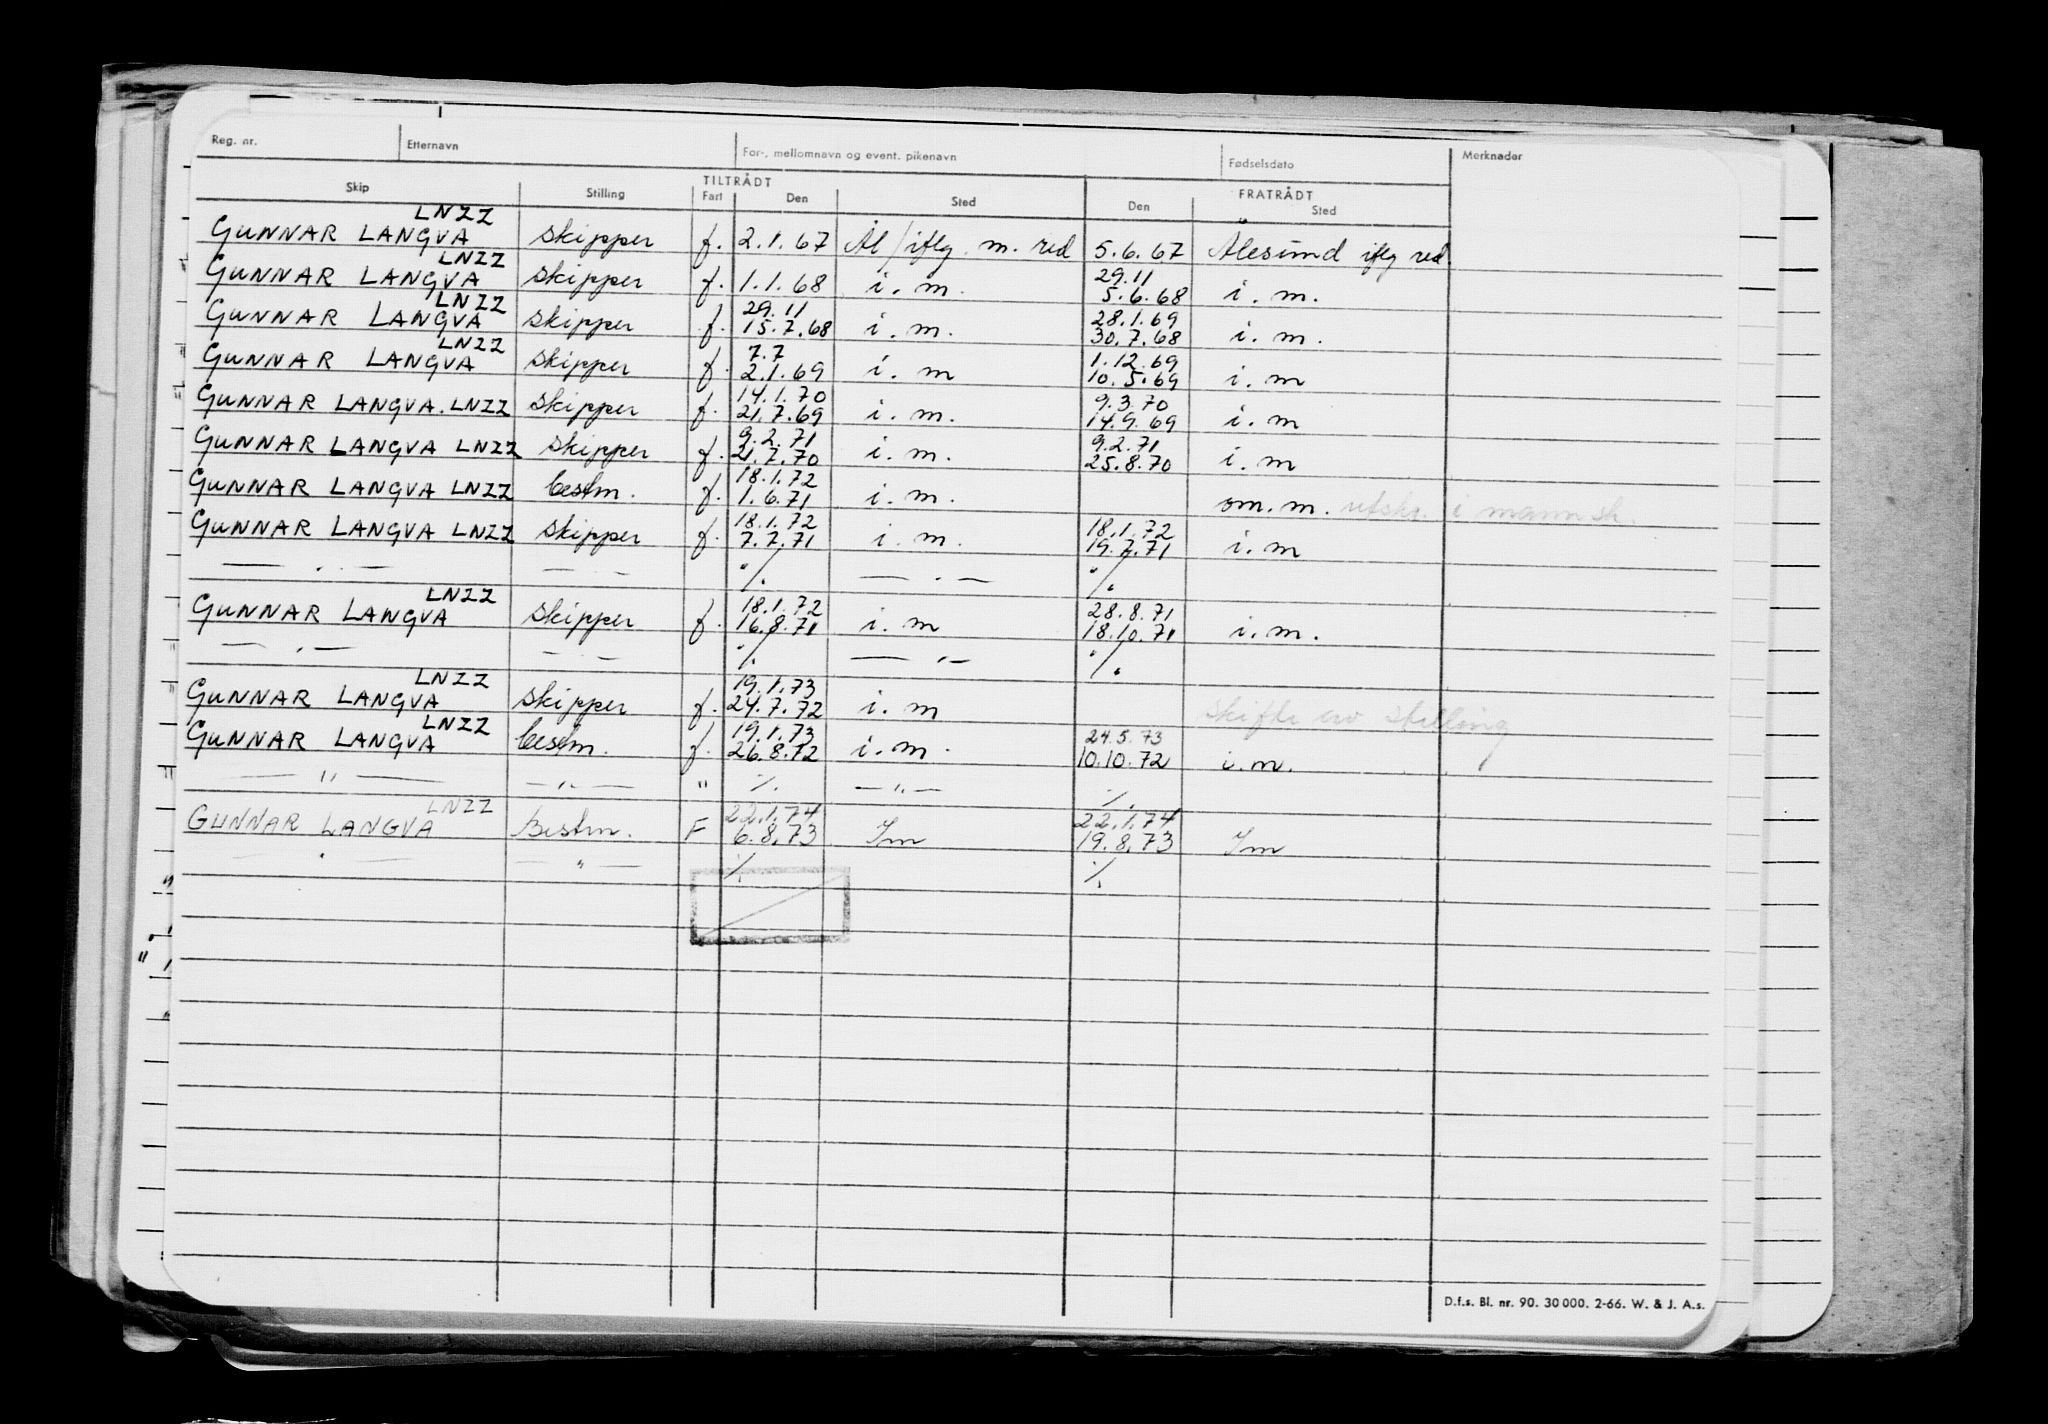 Reg. nr. Etternavn For-, mellomnavn og event. pikenavn Fødselsdato Merknader
TILTRÅDT FRATRÅDT
Skip Stilling Fart Den Sted Den Sted
LNZZ
GUNNAR LANGVA skipper f. 2.1.67 Ål/iflg. m. red 5.6.67 Ålesund iflg red.
LNZZ 29.11
GUNNAR LANGVA skipper f. 1.1.68 i. m. 5.6.68 i. m.
LNZZ 29.11 28.1.69
GUNNAR LANGVA skipper f. 15.7.68 i. m. 30.7.68 i. m.
LNZZ 7.7 1.12.69
GUNNAR LANGVA skipper f. 2.1.69 i. m 10.5.69 i. m
14.1.70 9.3.70
GUNNAR LANGVA. LNZZ skipper f. 21.7.69 i. m. 14.9.69 i. m
9.2.71 9.2.71
GUNNAR LANGVA LNZZ skipper f. 21.7.70 i. m. 25.8.70 i. m
18.1.72
GUNNAR LANGVA LNZZ bestm. f. 1.6.71 i. m. om. m. utskr. i mannsk.
18.1.72 18.1.72
GUNNAR LANGVA LNZZ skipper f. 7.7.71 i. m. 19.7.71 i. m
— . — — . — ./. — . — ./.
LNZZ 18.1.72 28.8.71
GUNNAR LANGVA skipper f. 16.8.71 i. m 18.10.71 i. m.
— . — — . — ./. — . — ./.
LNZZ 19.1.73
GUNNAR LANGVA skipper f. 24.7.72 i. m skifte av stilling
LNZZ 19.1.73 24.5.73
GUNNAR LANGVA bestm. f. 26.8.72 i. m. 10.10.72 i. m.
— " — — " — " ./. — " — ./.
LNZZ 22.1.74 22.1.74
GUNNAR LANGVA Bestm. F 6.8.73 Im 19.8.73 Im
— " — — " — ./. ./.
D.f.s. Bl. nr. 90. 30 000. 2-66. W. & J. A.s.